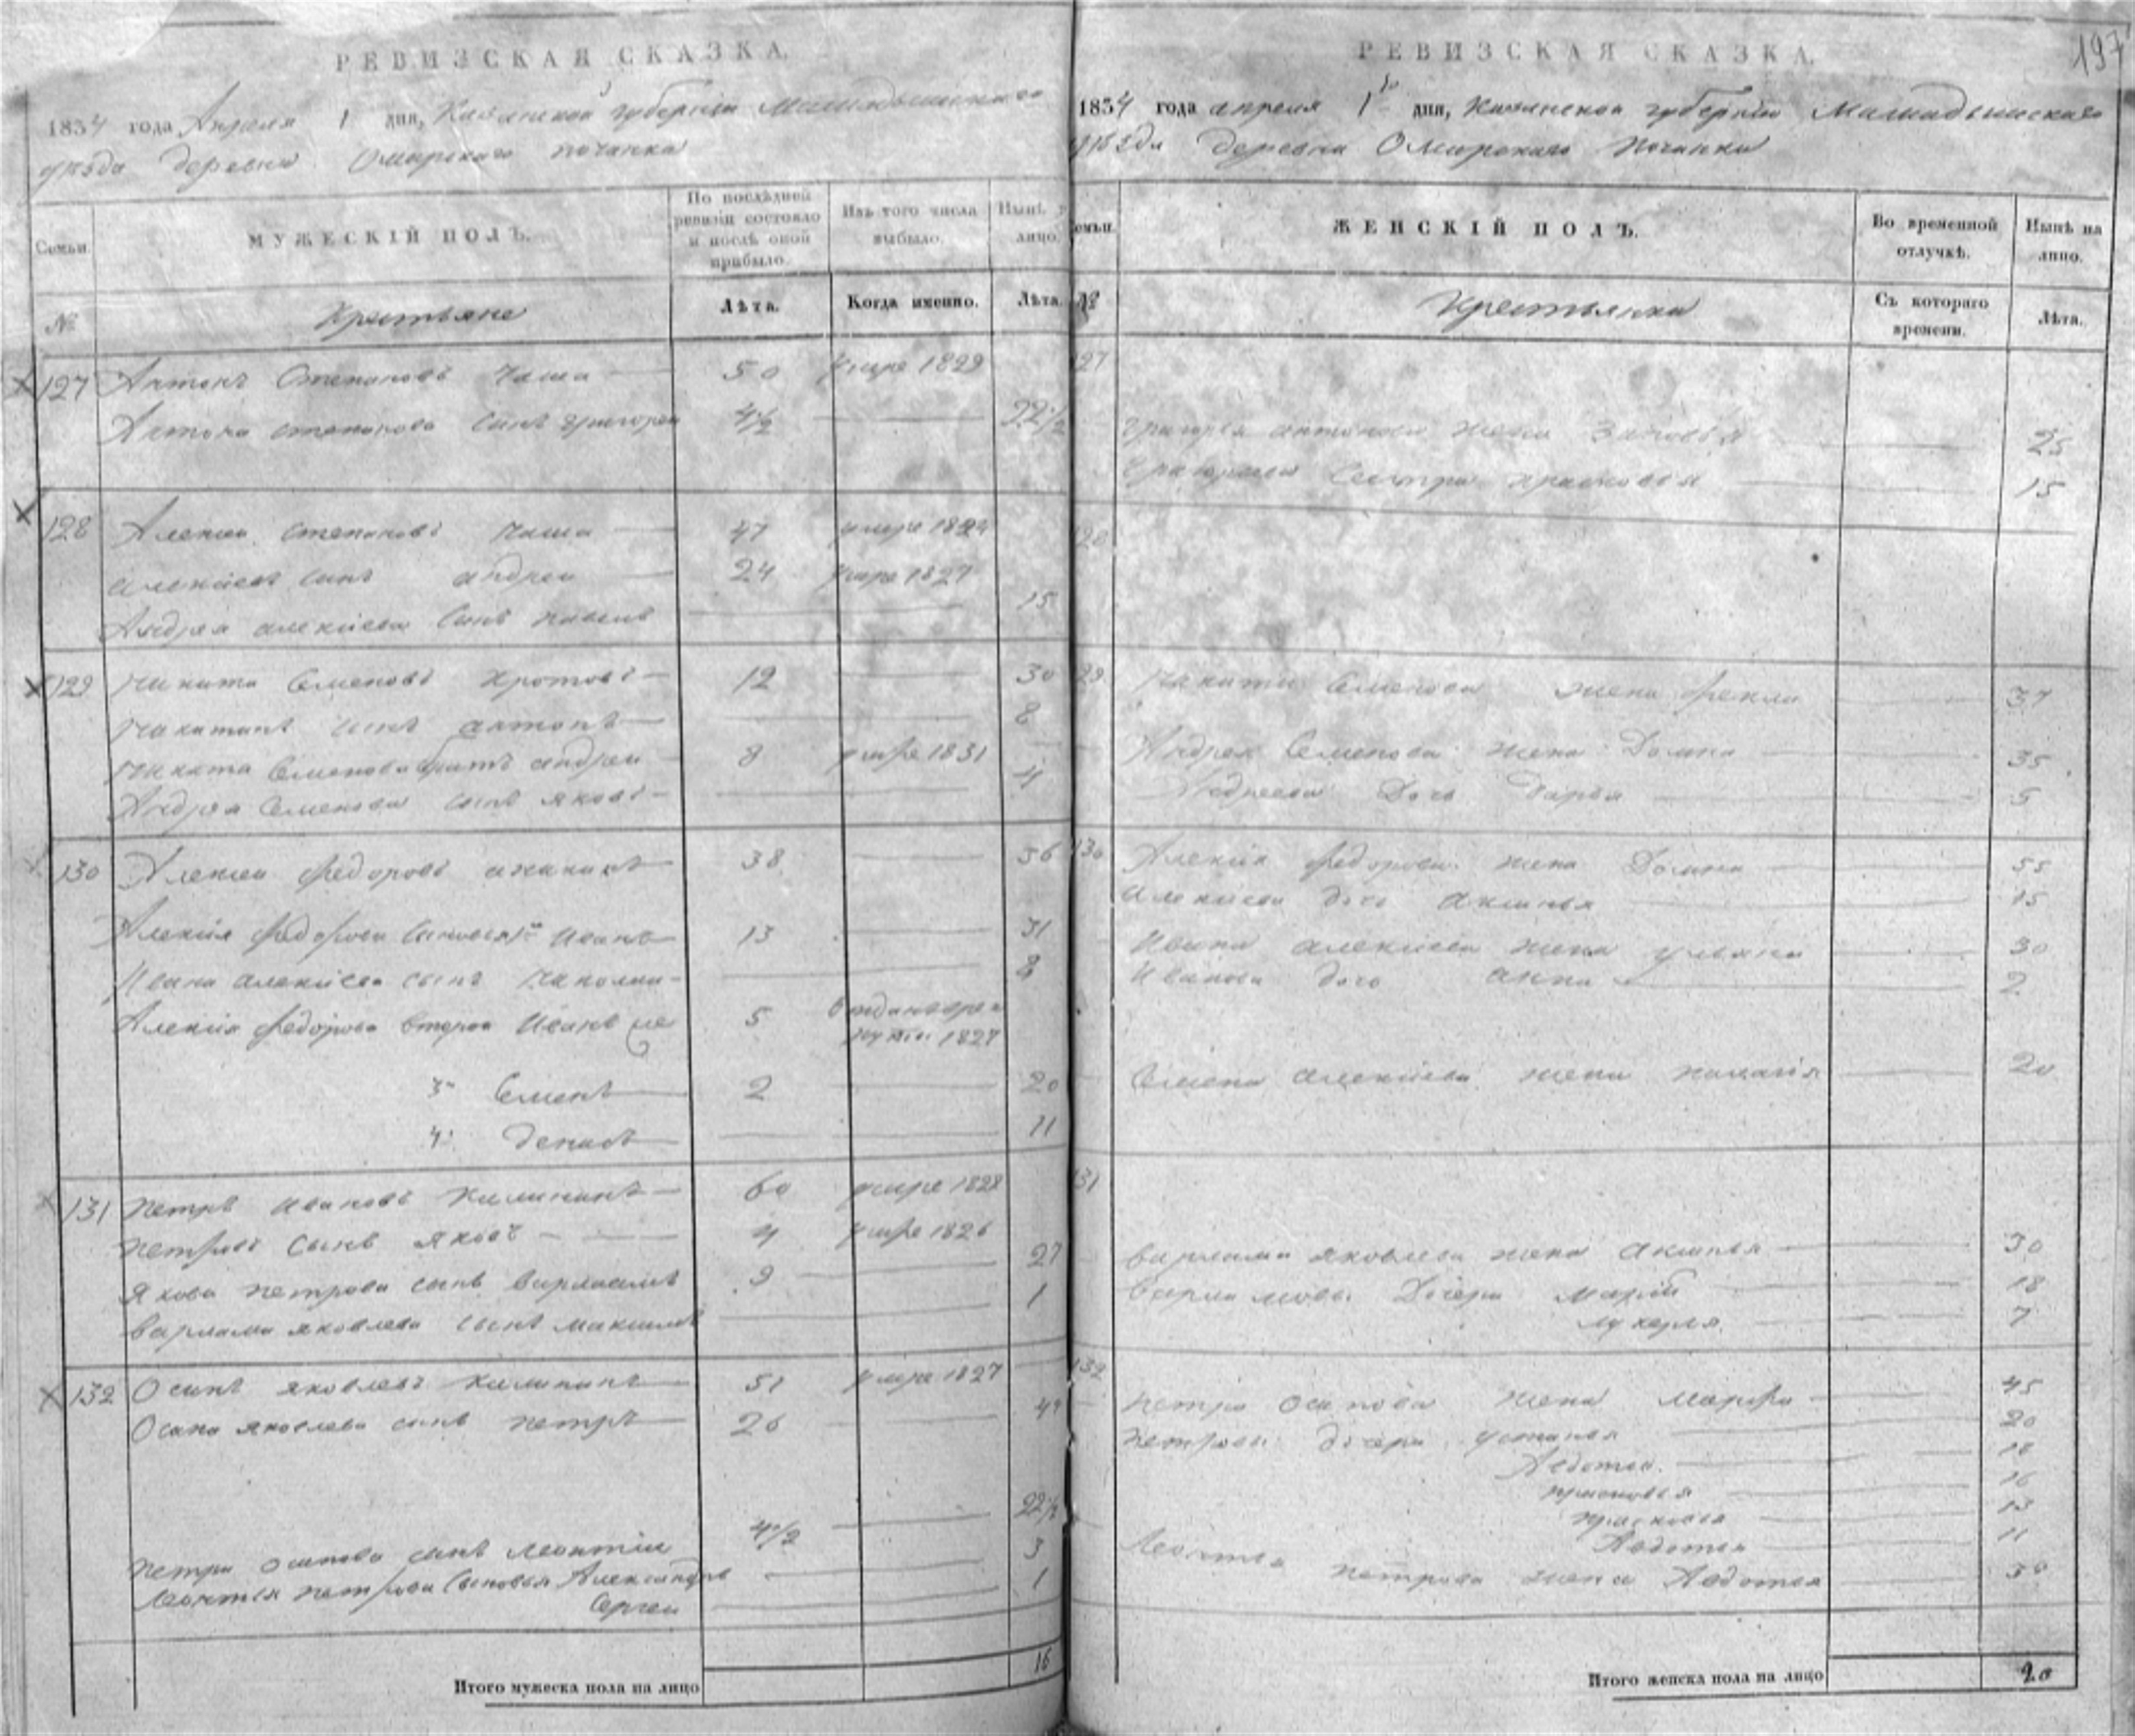 РЕВИЗСКАЯ СКАЗКА.
1834 года Апреля 1 дня, Казанской губернiи Мамадышскаго
уѣзда деревни Омарскаго починка
Семьи.
МУЖЕСКIЙ ПОЛЪ.
По послѣдней ревизiи состояло и послѣ оной прибыло.
Изъ того числа выбыло.
Нынѣ на лицо.
№
Крестьяне
Лѣта.
Когда именно.
Лѣта.
127 Антонъ Степановъ Чаша 50 умре 1829
Антона Степанова сынъ Григорей 4 1/2 22 1/2
128 Алексей Степановъ Чаша 47 умре 1824
Алексеевъ сынъ Андреи 24 умре 1827
Андрея Алексiева сынъ Павелъ 15
129 Никита Семеновъ Кротовъ 12 30
Никитинъ сынъ Антонъ 8
Никита Семенова братъ Андреи 8 умре 1831
Андрея Семенова сынъ Яковъ 4
130 Алексеи Федоровъ 38 56
Алексiя Федорова сыновья 1й Иванъ 13 31
Ивана Алексiева сынъ 8
Алексiя Федорова второй Иванъ же 5 1827
3й Семенъ 2 20
4й Денисъ 11
131 Петръ Ивановъ Калининъ 60 умре 1828
Петровъ сынъ Яковъ умре 1826
Якова Петрова сынъ Варлаамъ 9 27
Варлама Яковлева сынъ Максимъ 1
132 Осипъ Яковлевъ Калининъ 51 умре 1827
Осипа Яковлева сынъ Петръ 26 44
Петра Осипова сынъ Леонтiи 4 1/2 22 1/2
Леонтья Петрова сыновья Александръ 3
Сергеи 1
Итого мужеска пола на лицо 16
РЕВИЗСКАЯ СКАЗКА.
197
1834 года апреля 1го дня, Казанской губернiи Мамадышскаго
уѣзда деревни Омарскаго Починка
Семьи.
ЖЕНСКIЙ ПОЛЪ.
Во временной отлучкѣ.
Нынѣ на лицо.
№
Крестьянки
Съ котораго времени.
Лѣта.
127
Григорья Антонова жена Зиновья 25
Григорьева сестра Прасковья 15
128
129 Никиты Семенова жена Фекла 37
Андрея Семенова жена Домна 35
Андреева дочь Дарья 5
130 Алексiя Федорова жена Домна 55
Алексiева дочь Аксинья 15
Ивана Алексiева жена Ульяна 30
Иванова дочь Анна 2
Семена Алексiева жена Палагiя 20
131
Варлама Яковлева жена Аксинья 30
Варламовы дочери Марiя 18
Лукерья 7
132
Петра Осипова жена Марфа 45
Петровы дочери Устинья 20
Авдотья 18
Прасковья 16
Прасковья 13
Авдотья 11
Леонтья Петрова жена Авдотья 30
Итого женска пола на лицо 20